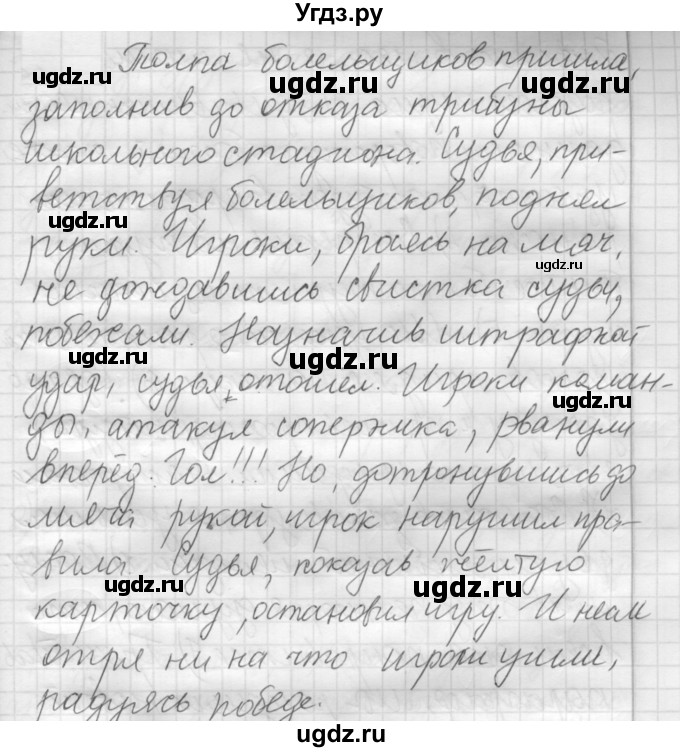 Угдз.ру
Толпа болельщиков пришла,
заполнив до отказа трибуны
школьного стадиона. Судья, при-
ветствуя болельщиков, поднял
руки. Игроки, бросаясь на мяч,
не дождавшись свистка судьи,
побежали. Назначив штрафной
удар, судья отошёл. Игроки коман-
ды, атакуя соперника, рванули
вперёд. Гол!!! Но, дотронувшись до
мяча рукой, игрок нарушил пра-
вила. Судья, показав жёлтую
карточку, остановил игру. И несм
отря ни на что игроки ушли,
радуясь победе.
ugdz.ru
ugdz.ru
ugdz.ru
ugdz.ru
ugdz.ru
ugdz.ru
ugdz.ru
ugdz.ru
ugdz.ru
ugdz.ru
ugdz.ru
ugdz.ru